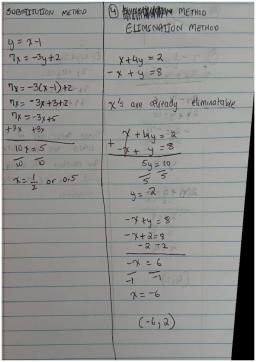 SUBSTITUTION METHOD
y = x-1
7x = -3y+2
7x = -3(x-1)+2
7x = -3x+3+2
7x = -3x+5
+3x +3x
10x = 5
10 10
x = 1/2 or 0.5
4 METHOD
ELIMINATION METHOD
x+4y = 2
-x + y = 8
x's are already eliminatable
x + 4y = 2
+ -x + y = 8
5y = 10
5 5
y = 2
-x+y = 8
-x+2 = 8
-2 -2
-x = 6
-1 -1
x = -6
(-6, 2)